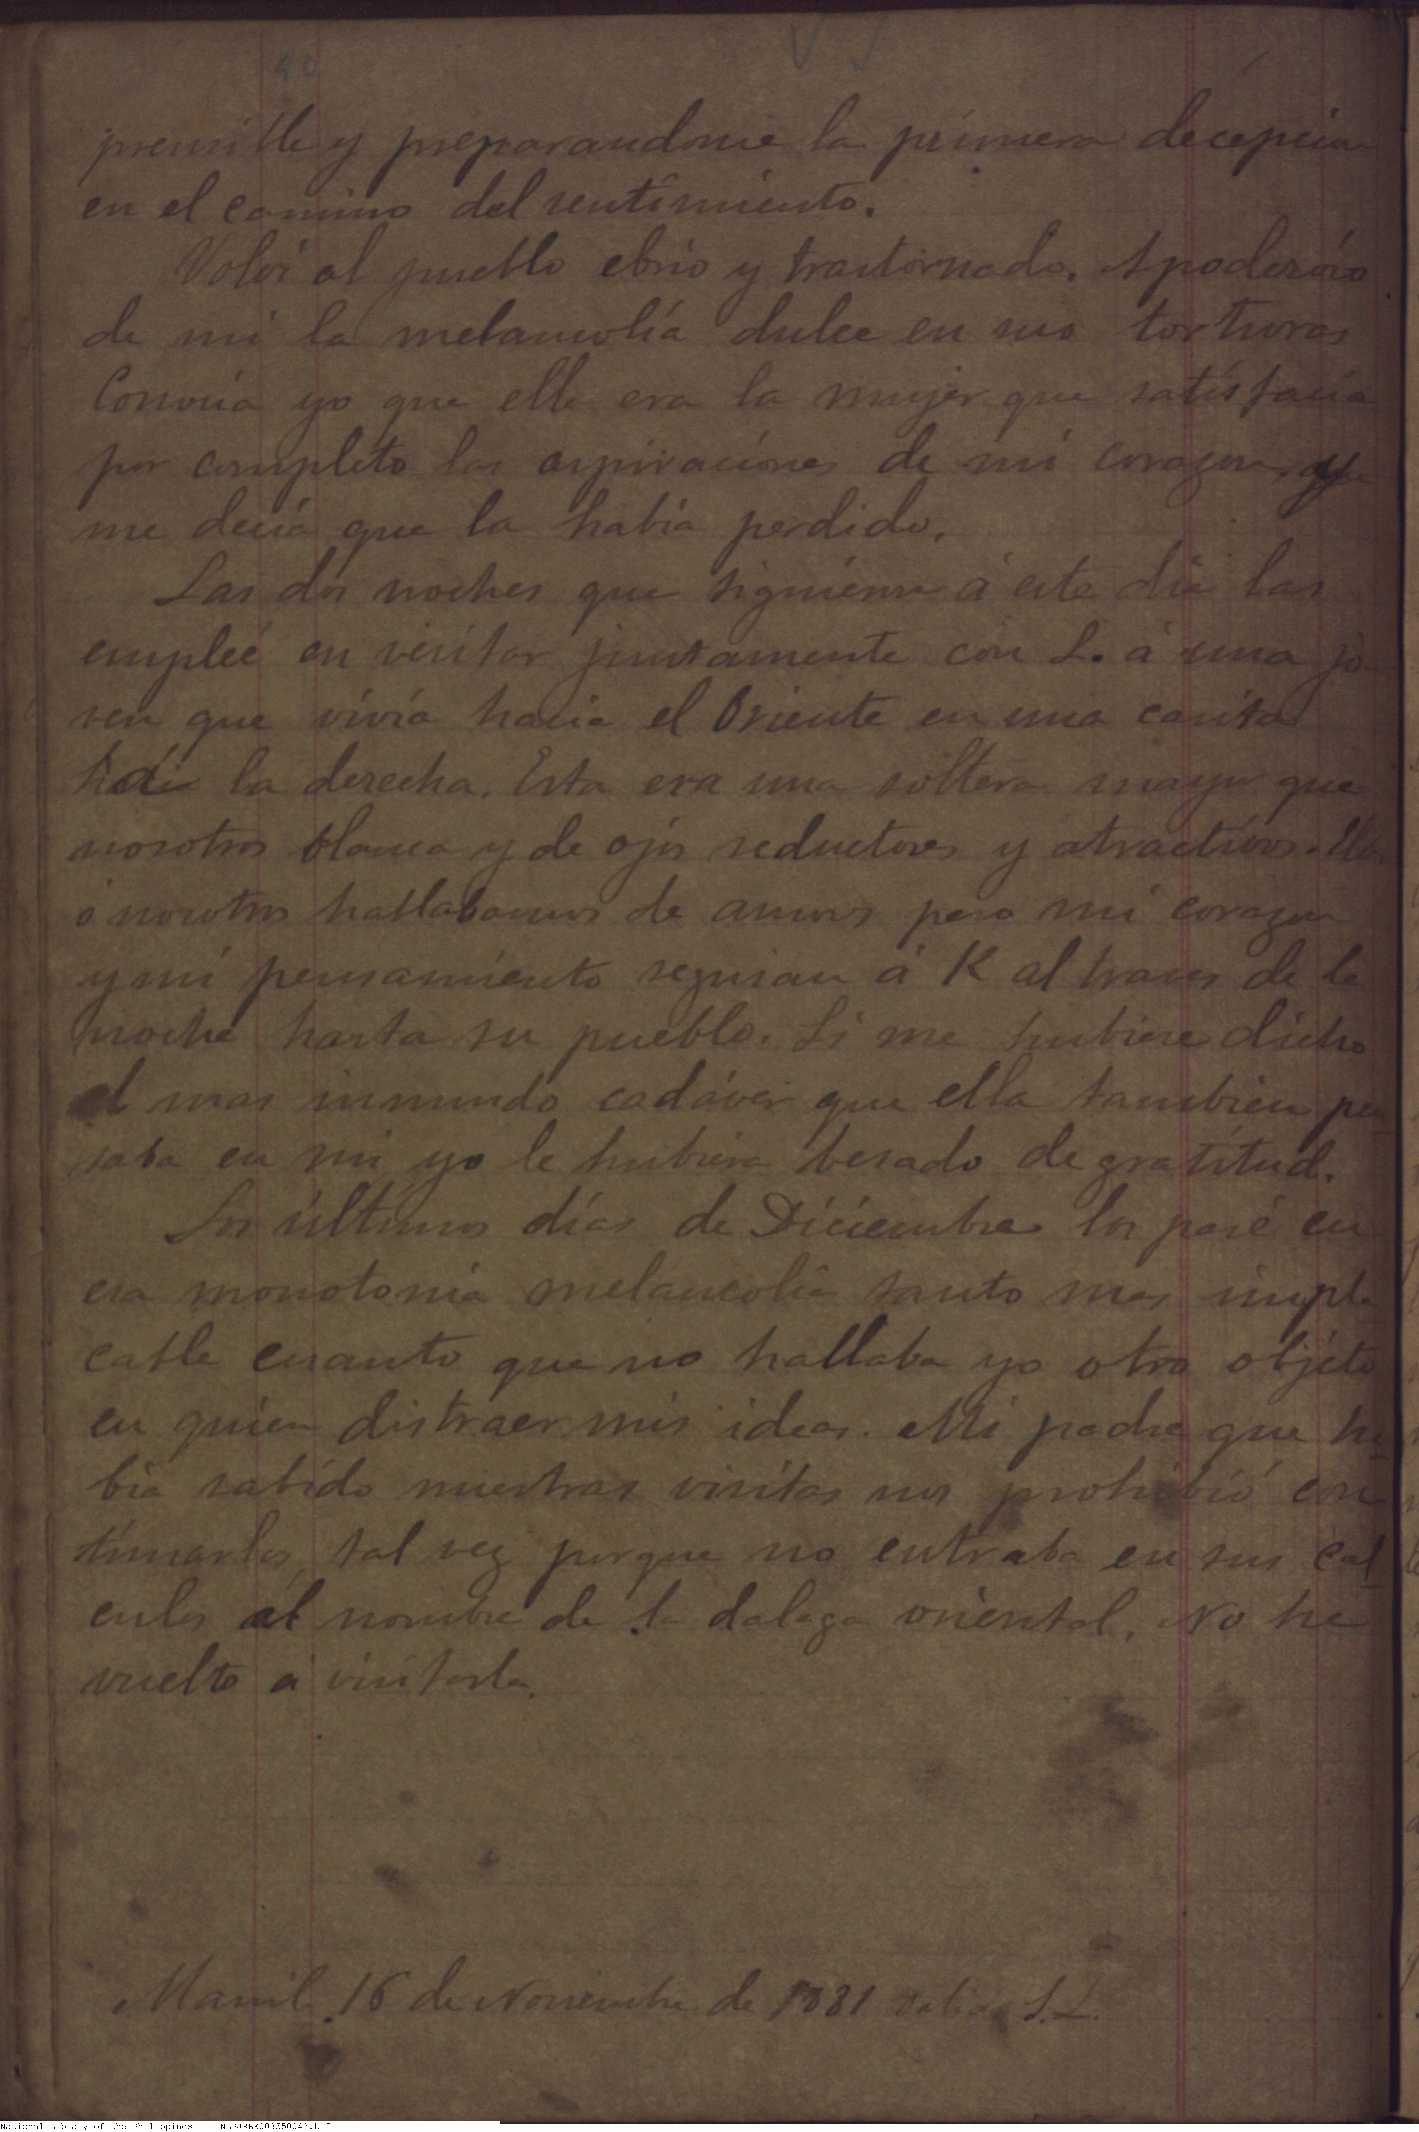 40
prensible y preparandome la primera decepcion
en el camino del sentimiento.
Volví al pueblo ebrio y trastornado. Apoderóse
de mi la melancolía dulce en sus torturas
Conocía yo que ella era la mujer que satisfacía
por completo las aspiraciones de mi corazon, y
me decía que la había perdido.
Las dos noches que siguieron á este día las
empleé en visitar juntamente con L. á una jó
ven que vivía hacia el Oriente en una casita
la derecha. Esta era una soltera mayor que
nosotros blanca y de ojos seductores y atractivos. Ella
ó nosotros hablabamos de amores pero mi corazon
y mi pensamiento seguian á K al traves de la
noche hasta su pueblo. Si me hubiese dicho
el mas inmundo cadáver que ella tambien pen
saba en mi yo le hubiera besado de gratitud.
Los últimos días de Diciembre los pasé en
esa monotonía melancolía tanto mas impla
cable cuanto que no hallaba yo otro objeto
en quien distraer mis ideas. Mi padre que ha
bia sabido nuestras visitas nos prohibió con
tinuarlas, tal vez porque no entraba en sus cál
culos el nombre de la dalaga oriental. No he
vuelto á visitarla.
Manila 16 de Noviembre de 1881
National Library of the Philippines